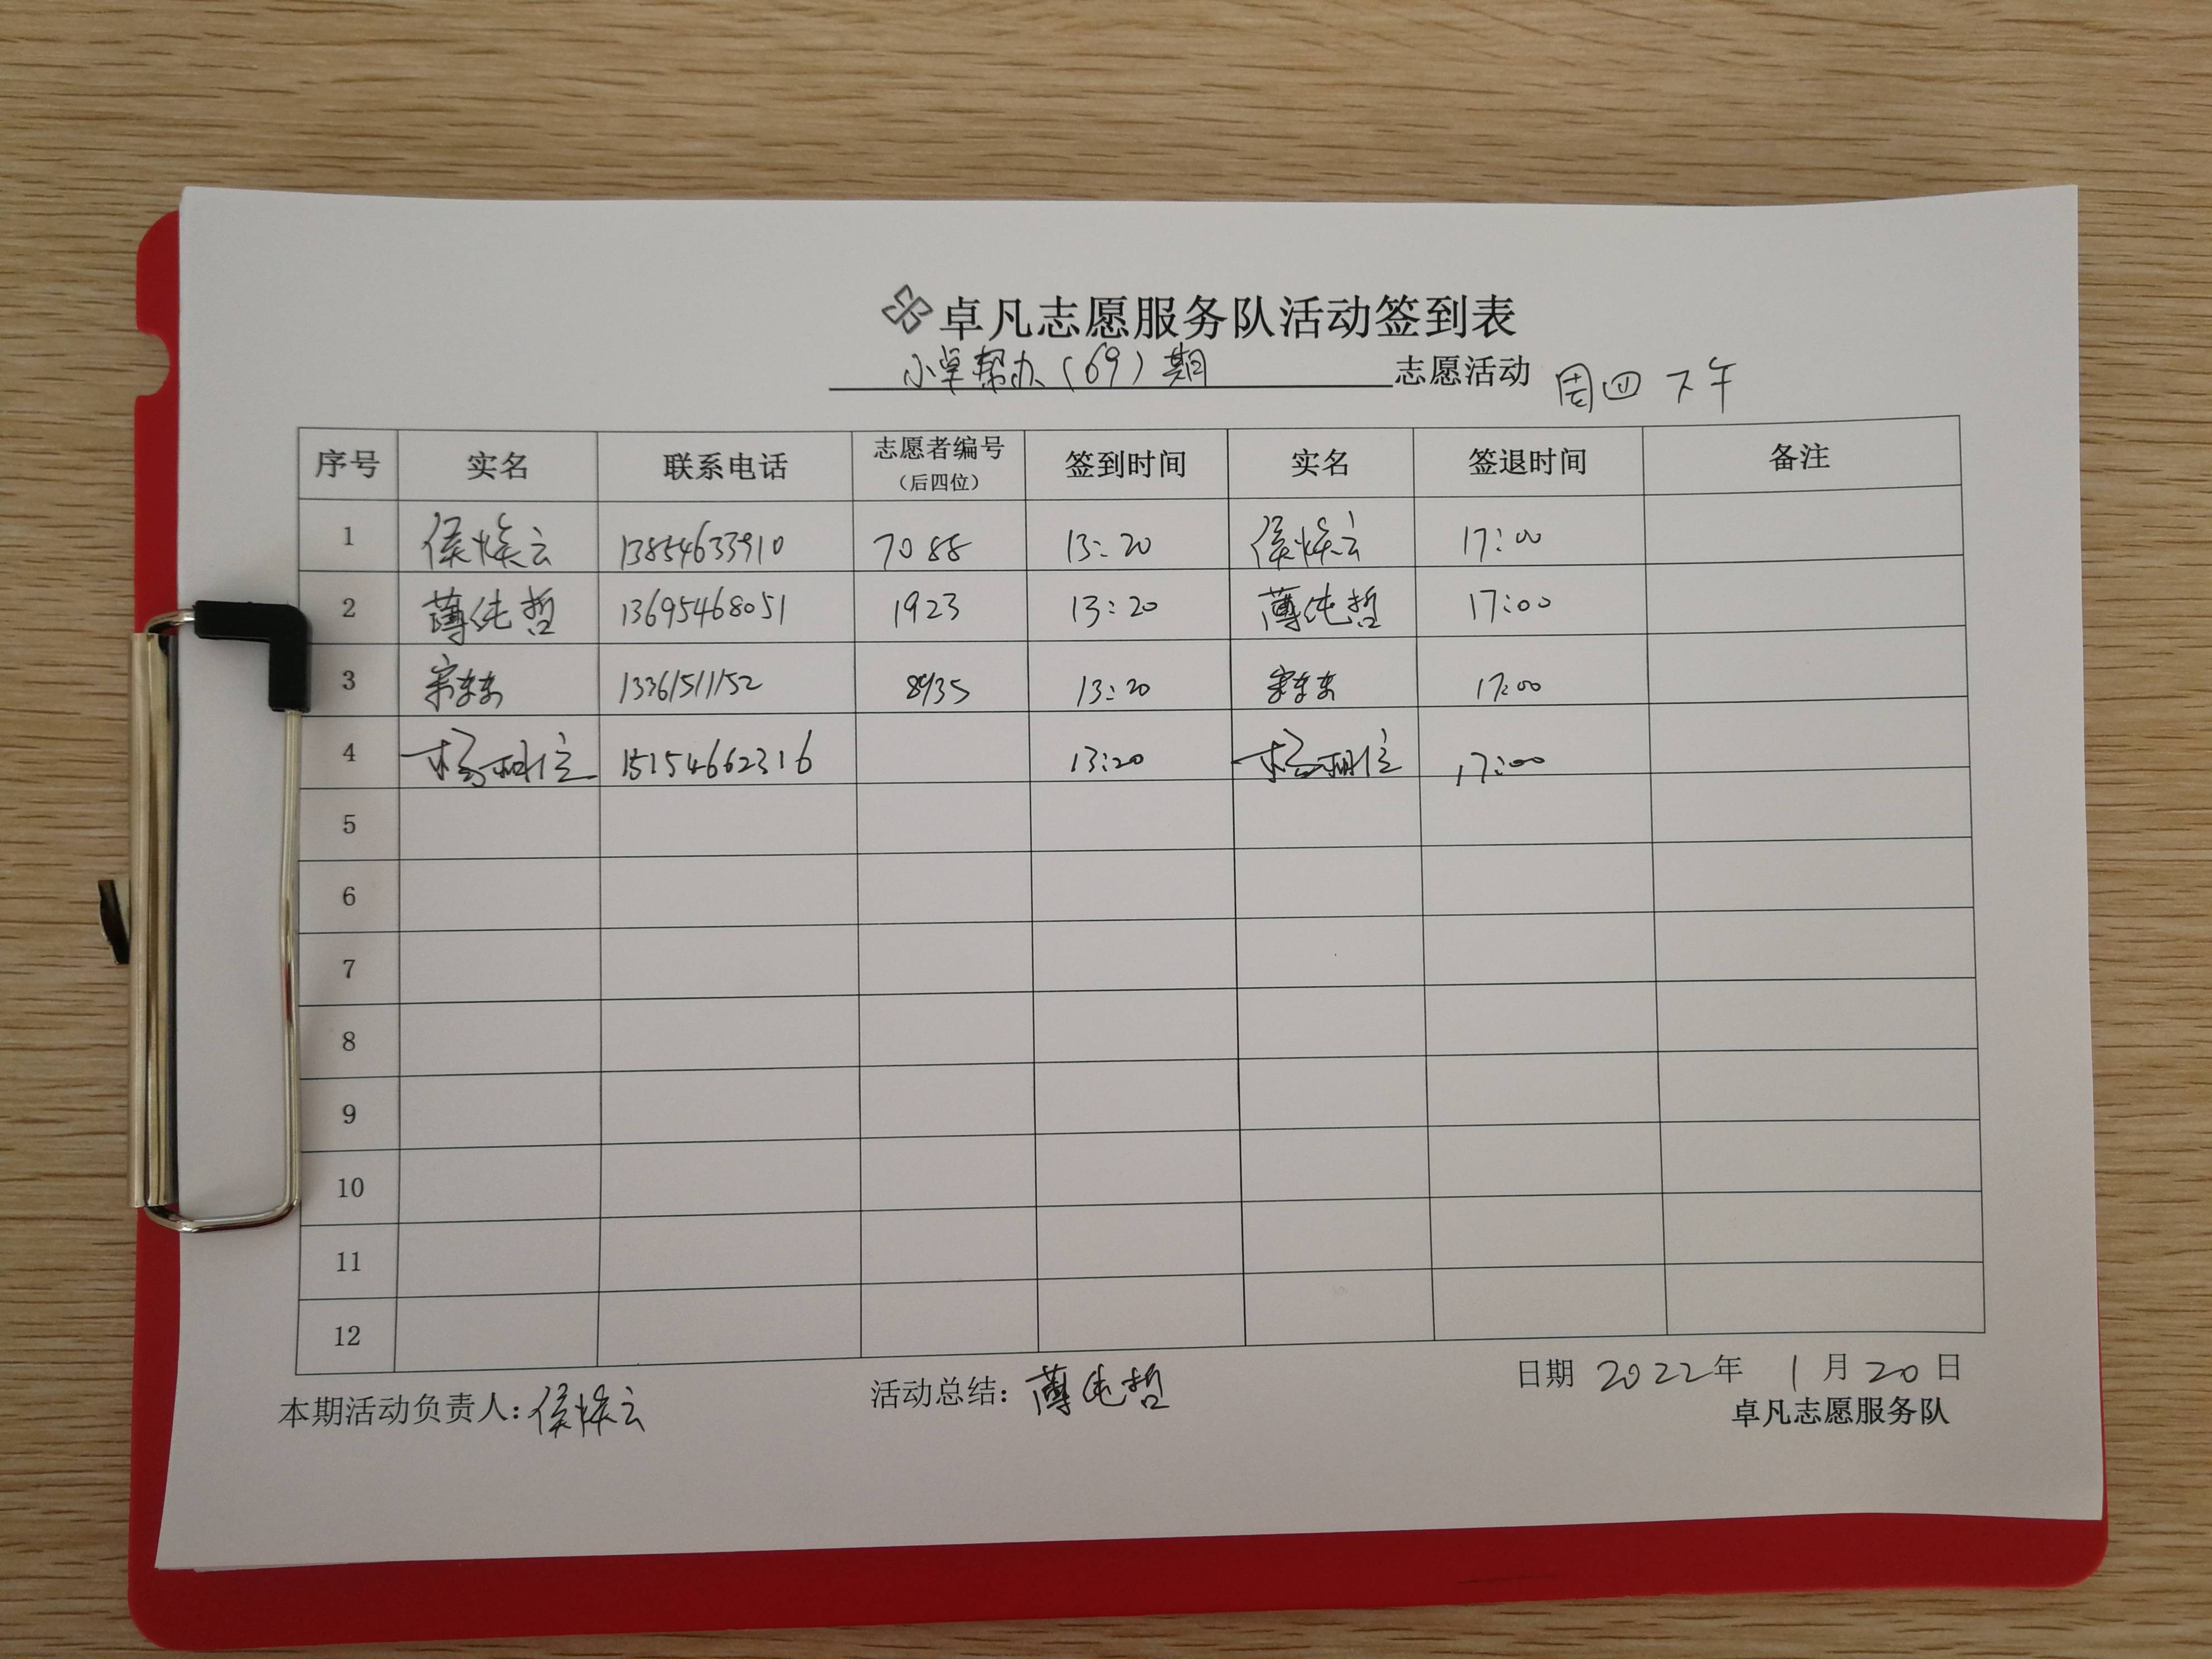 卓凡志愿服务队活动签到表
小卓帮办（69）期 志愿活动 周四下午
序号 实名 联系电话 志愿者编号（后四位） 签到时间 实名 签退时间 备注
1 侯焕云 13854633910 7088 13:20 侯焕云 17:00
2 薄纯哲 13695468051 1923 13:20 薄纯哲 17:00
3 13361511152 8935 13:20 17:00
4 15154662316 13:20 17:00
5
6
7
8
9
10
11
12
本期活动负责人：侯焕云 活动总结：薄纯哲 日期 2022年 1月20日
卓凡志愿服务队